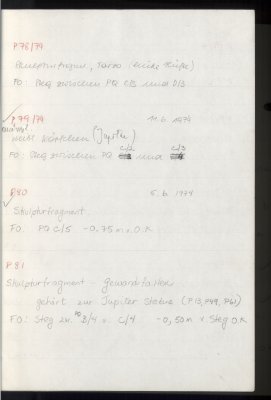 P 78/79
Skulpturfragm., Torso (linke Hüfte)
FO: Steg zwischen PQ C/3 und D/3
P 79/79 11.6.1974
(Jupiter)
FO: Steg zwischen PQ C/2 und C/3
P 80 5.6.1974
Skulpturfragment
FO: PQ C/5 -0,75 m v. O.K
P 81
Skulpturfragment Gewandfalten
gehört zur Jupiter Statue (P13, P49, P61)
FO: Steg zw. PQ B/4 u. C/4 -0,50 m v Steg O.K